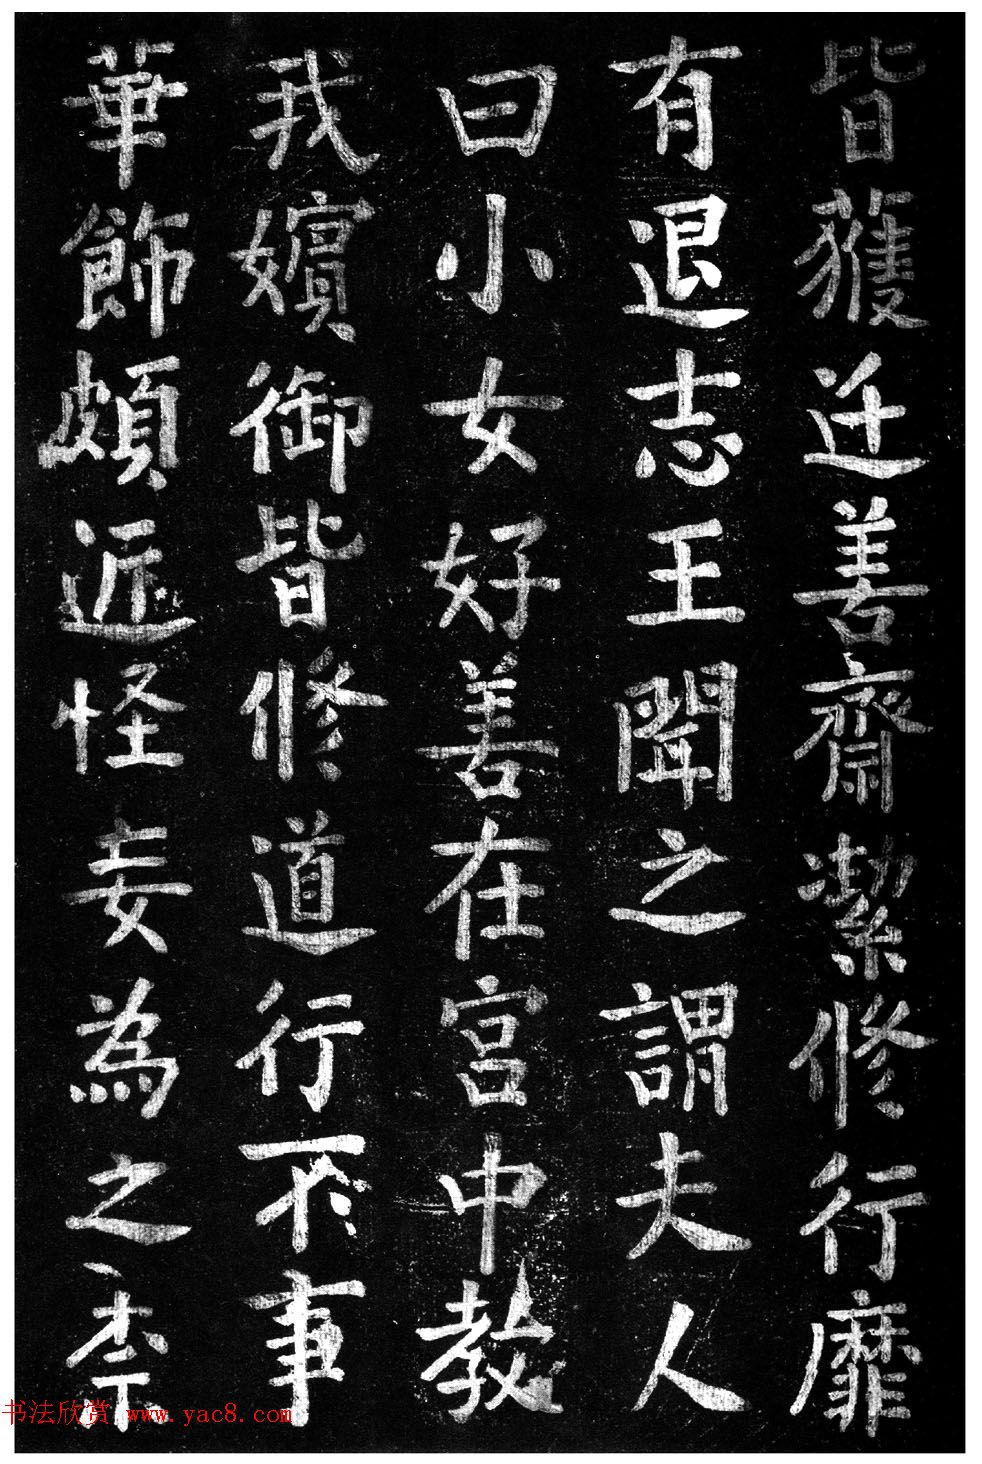 皆獲迁善齋潔修行靡
有退志王聞之謂夫人
曰小女好善在宮中教
我嬪御皆修道行不事
華飾頗近怪妄為之柰
书法欣赏 www.yac8.com